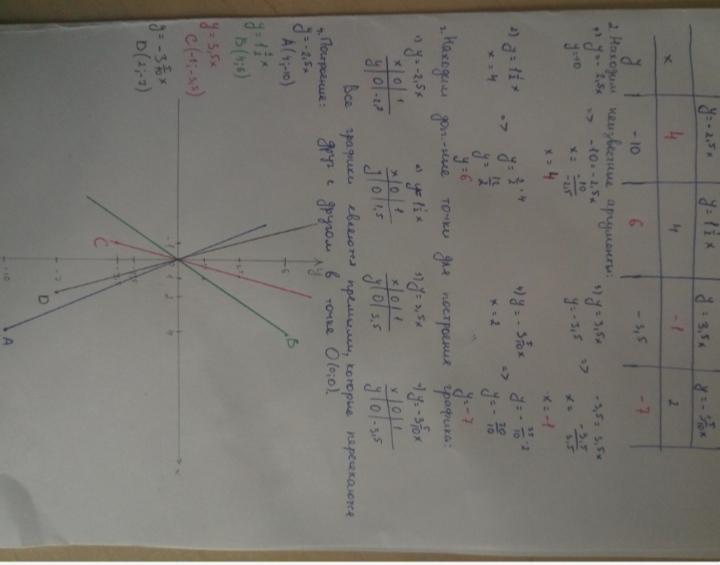 y=-2,5x y=1½x y=3,5x y=-3 5/10 x
x 4 4 -1 2
y -10 6 -3,5 -7
2. Находим неизвестные аргументы:
1) y=-2,5x => -10=-2,5x
y=-10 x=-10/-2,5
x=4
2) y=1½x => y=3/2·4
x=4 y=12/2
y=6
3) y=3,5x => -3,5=3,5x
y=-3,5 x=-3,5/3,5
x=-1
4) y=-3 5/10 x => y=-35/10·2
x=2 y=-70/10
y=-7
Находим точки для построения графика:
1) y=-2,5x
x 0 1
y 0
2) y=1½x
x 0 1
y 0 1,5
3) y=3,5x
x 0 1
y 0 3,5
4) y=-3 5/10 x
x 0 1
y 0 -3,5
Все графики прямыми, которые пересекаются
друг с другом в точке O(0;0).
Построение:
y=-2,5x
A(4;-10)
y=1½x
B(4;6)
y=3,5x
C(-1;-3,5)
y=-3 5/10 x
D(2;-7)
y
x
A
B
C
D
-10
-7
6
4